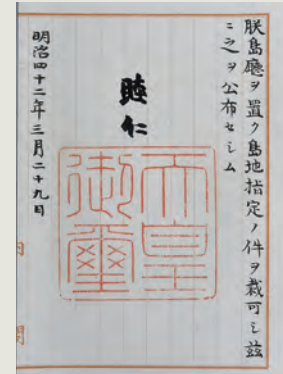 朕島廳ヲ置ク島地指定ノ件ヲ裁可シ茲
ニ之ヲ公布セシム
睦仁
天皇
御璽
明治四十二年三月二十九日
内閣